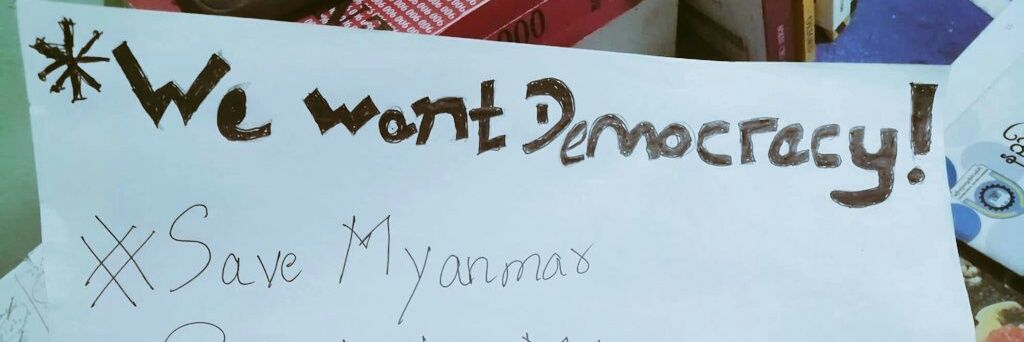 *We want Democracy!
#Save Myanmar